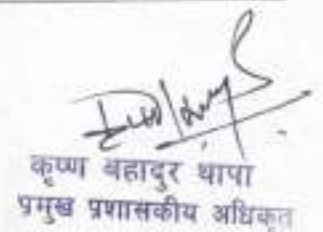 कृष्ण बहादुर थापा
प्रमुख प्रशासकीय अधिकृत